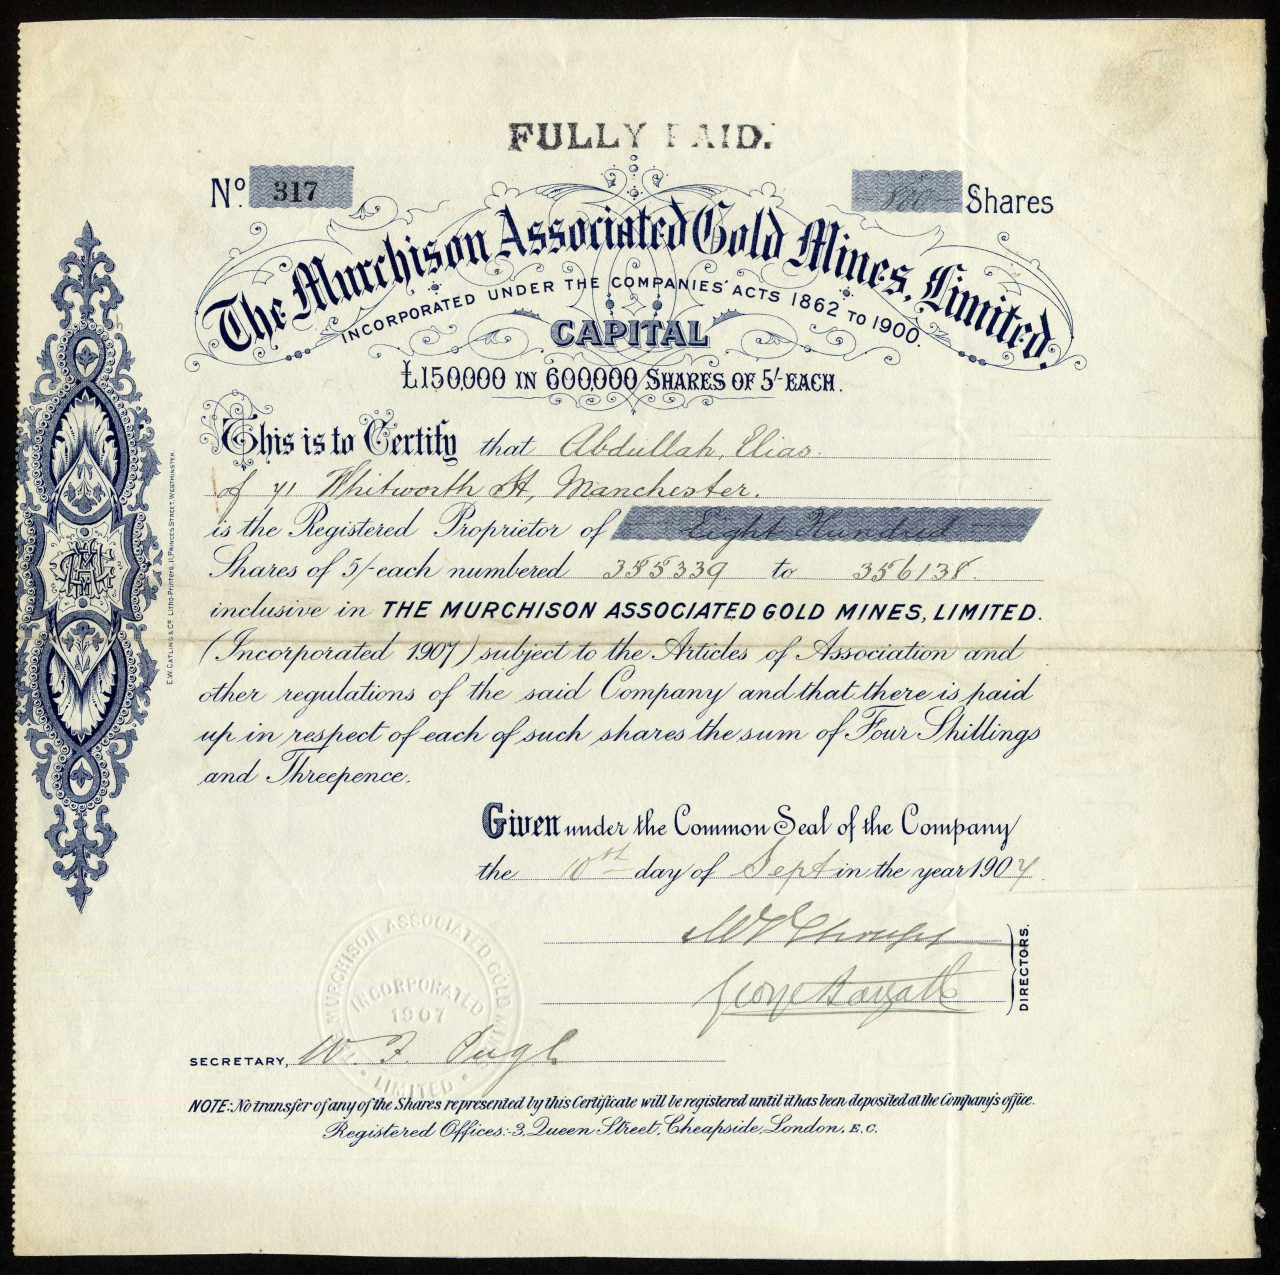 FULLY PAID.
No. 317
800 Shares
The Murchison Associated Gold Mines, Limited.
INCORPORATED UNDER THE COMPANIES' ACTS 1862 TO 1900.
CAPITAL
£150,000 IN 600,000 SHARES OF 5/- EACH.
This is to Certify that Abdullah, Elias.
of 71 Whitworth St, Manchester.
is the Registered Proprietor of Eight Hundred
Shares of 5/- each numbered 355339 to 356138.
inclusive in THE MURCHISON ASSOCIATED GOLD MINES, LIMITED.
(Incorporated 1907) subject to the Articles of Association and
other regulations of the said Company and that there is paid
up in respect of each of such shares the sum of Four Shillings
and Threepence.
Given under the Common Seal of the Company
the 10th day of Sept in the year 1907.
George
DIRECTORS.
THE MURCHISON ASSOCIATED GOLD MINES LIMITED
INCORPORATED
1907
SECRETARY, W. F. Pugh
NOTE:-No transfer of any of the Shares represented by this Certificate will be registered until it has been deposited at the Company's office.
Registered Offices:-3, Queen Street, Cheapside, London, E.C.
E.W. CATLING & Co. Litho. Printers, 11, PRINCES STREET, WESTMINSTER.